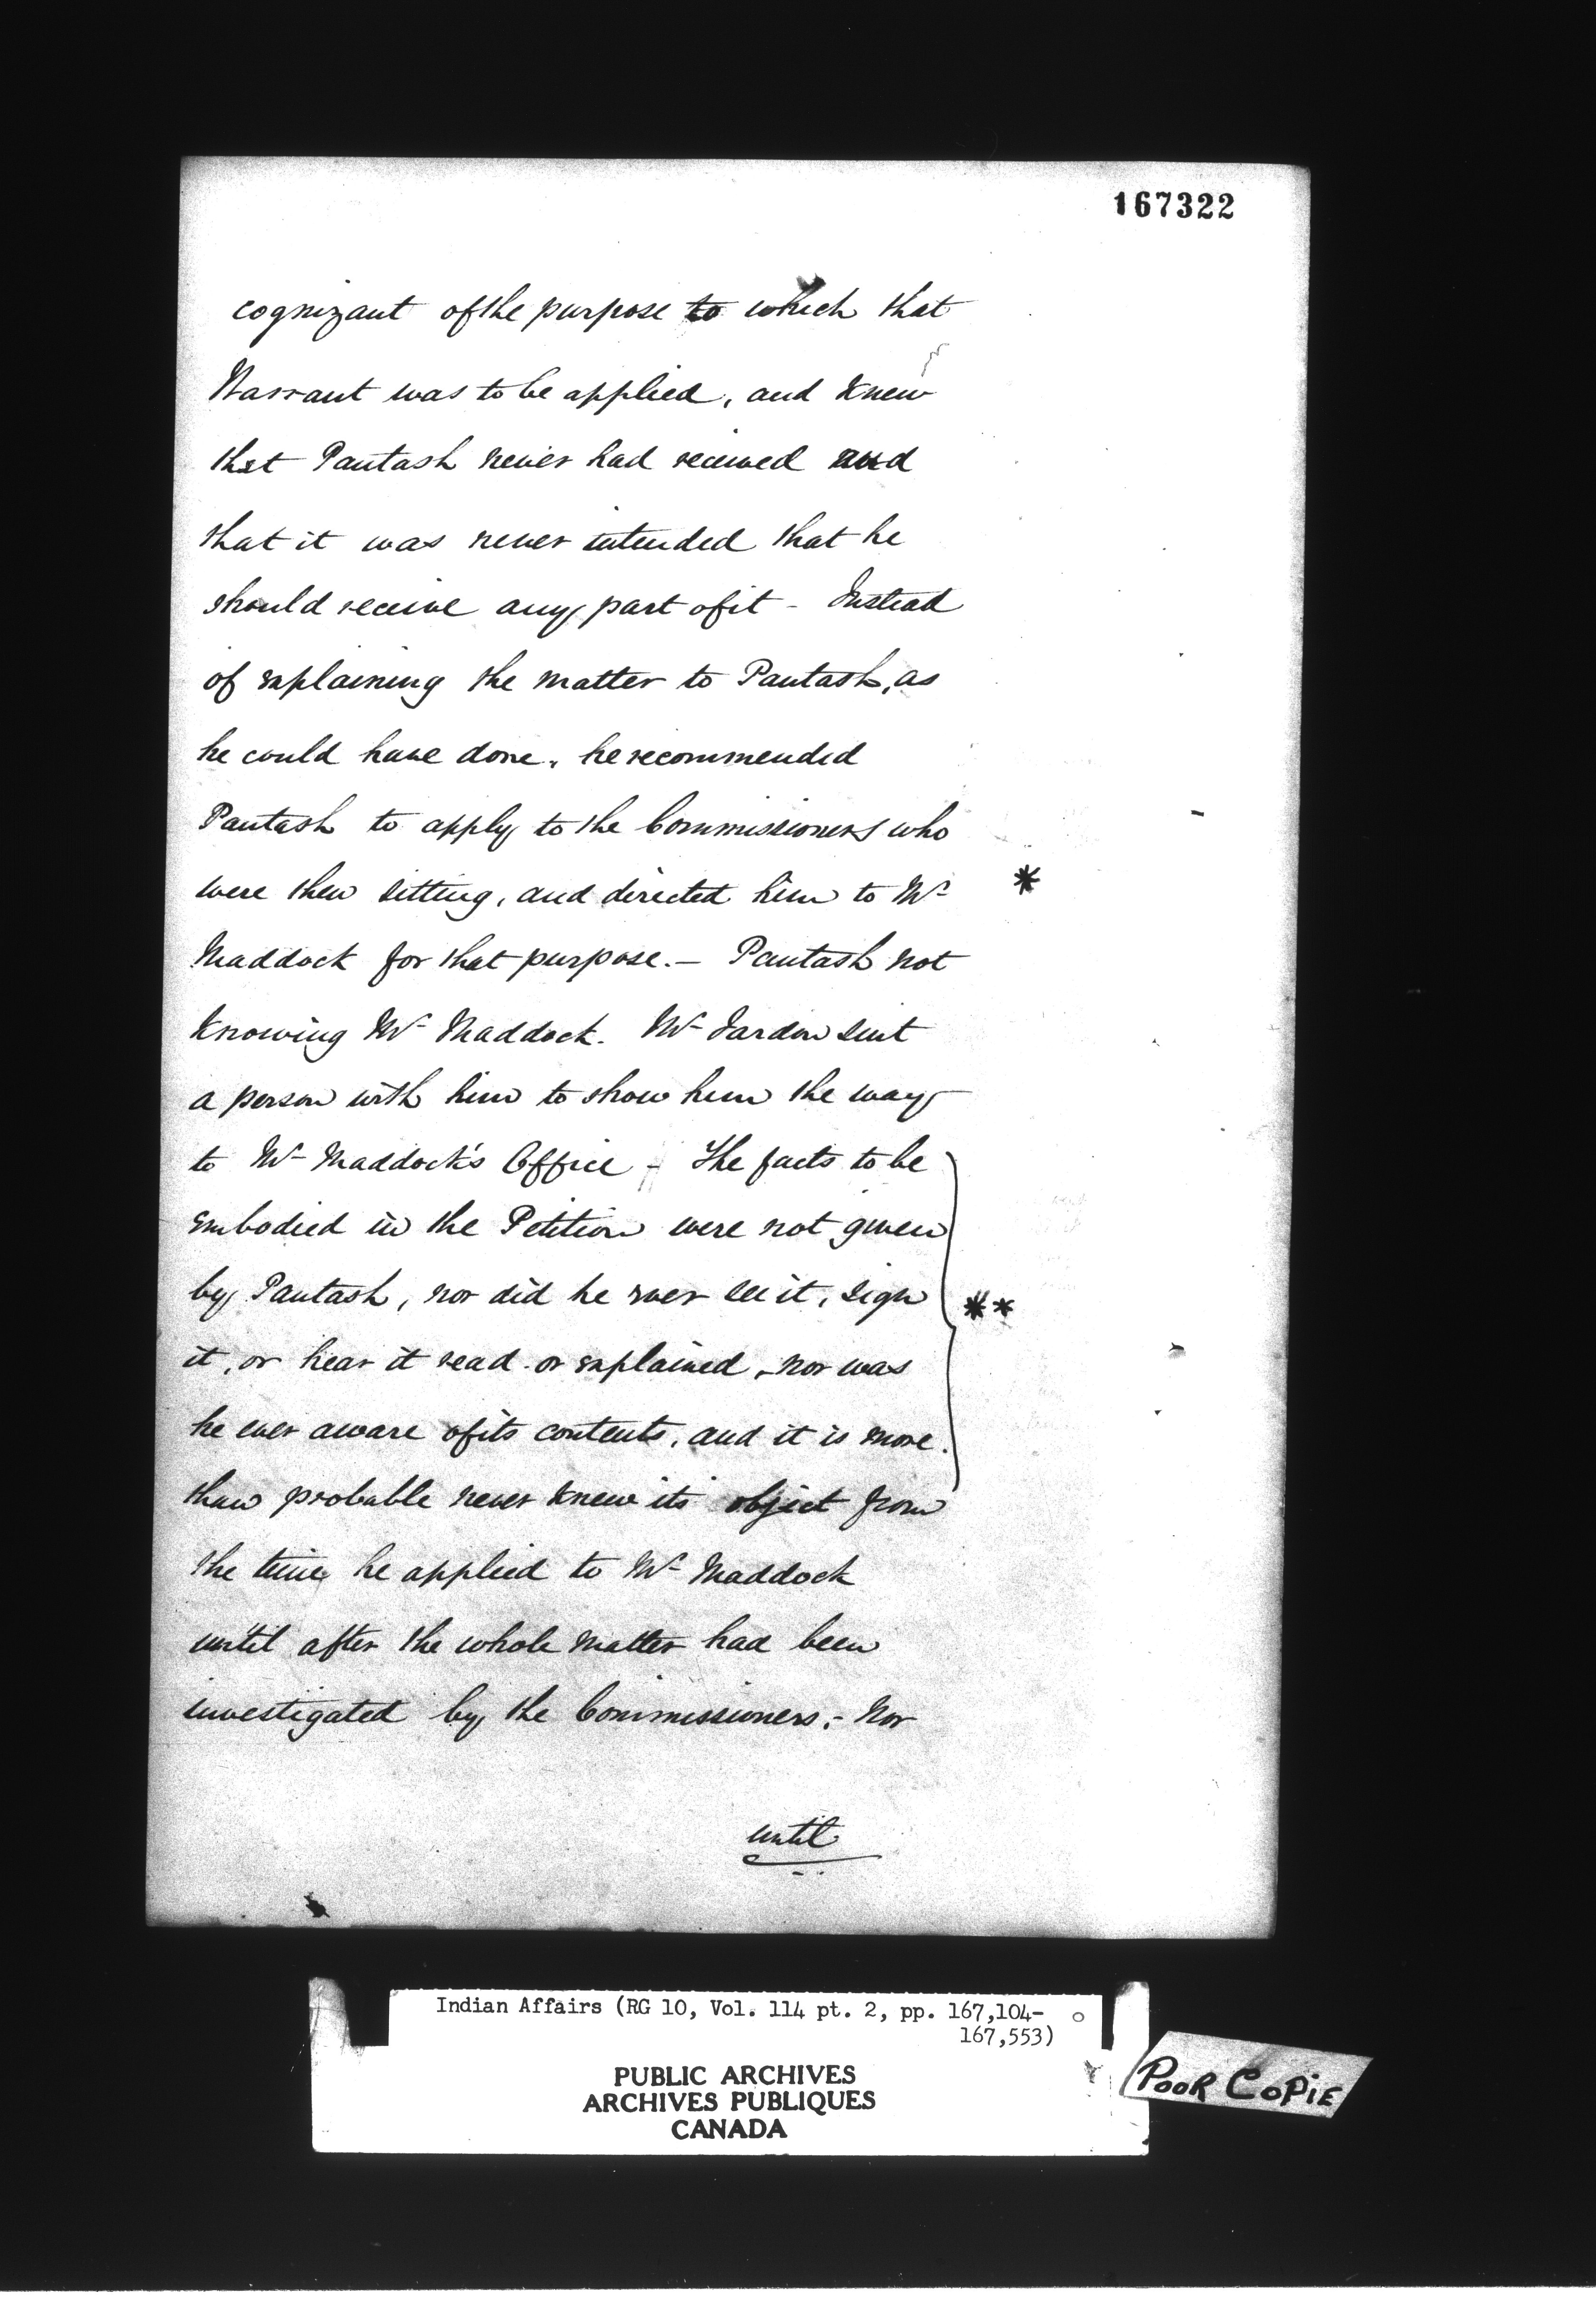 167322
cognizant of the purpose to which that
Warrant was to be applied, and knew
that Pautash never had received and
that it was never intended that he
should receive any part of it - Instead
of explaining the matter to Pautash, as
he could have done, he recommended
Pautash to apply to the Commissioners who
were then sitting, and directed him to Mr
*
Maddock for that purpose. - Pautash not
knowing Mr Maddock. Mr Jardin sent
a person with him to show him the way
to Mr Maddock's Office - The facts to be
embodied in the Petition were not given
by Pautash, nor did he ever see it, sign
**
it, or hear it read or explained, nor was
he ever aware of its contents, and it is more
than probable never knew its object from
the time he applied to Mr Maddock
until after the whole matter had been
investigated by the Commissioners; - Nor
until
Indian Affairs (RG 10, Vol. 114 pt. 2, pp. 167,104-
167,553)
PUBLIC ARCHIVES
ARCHIVES PUBLIQUES
CANADA
POOR COPIE